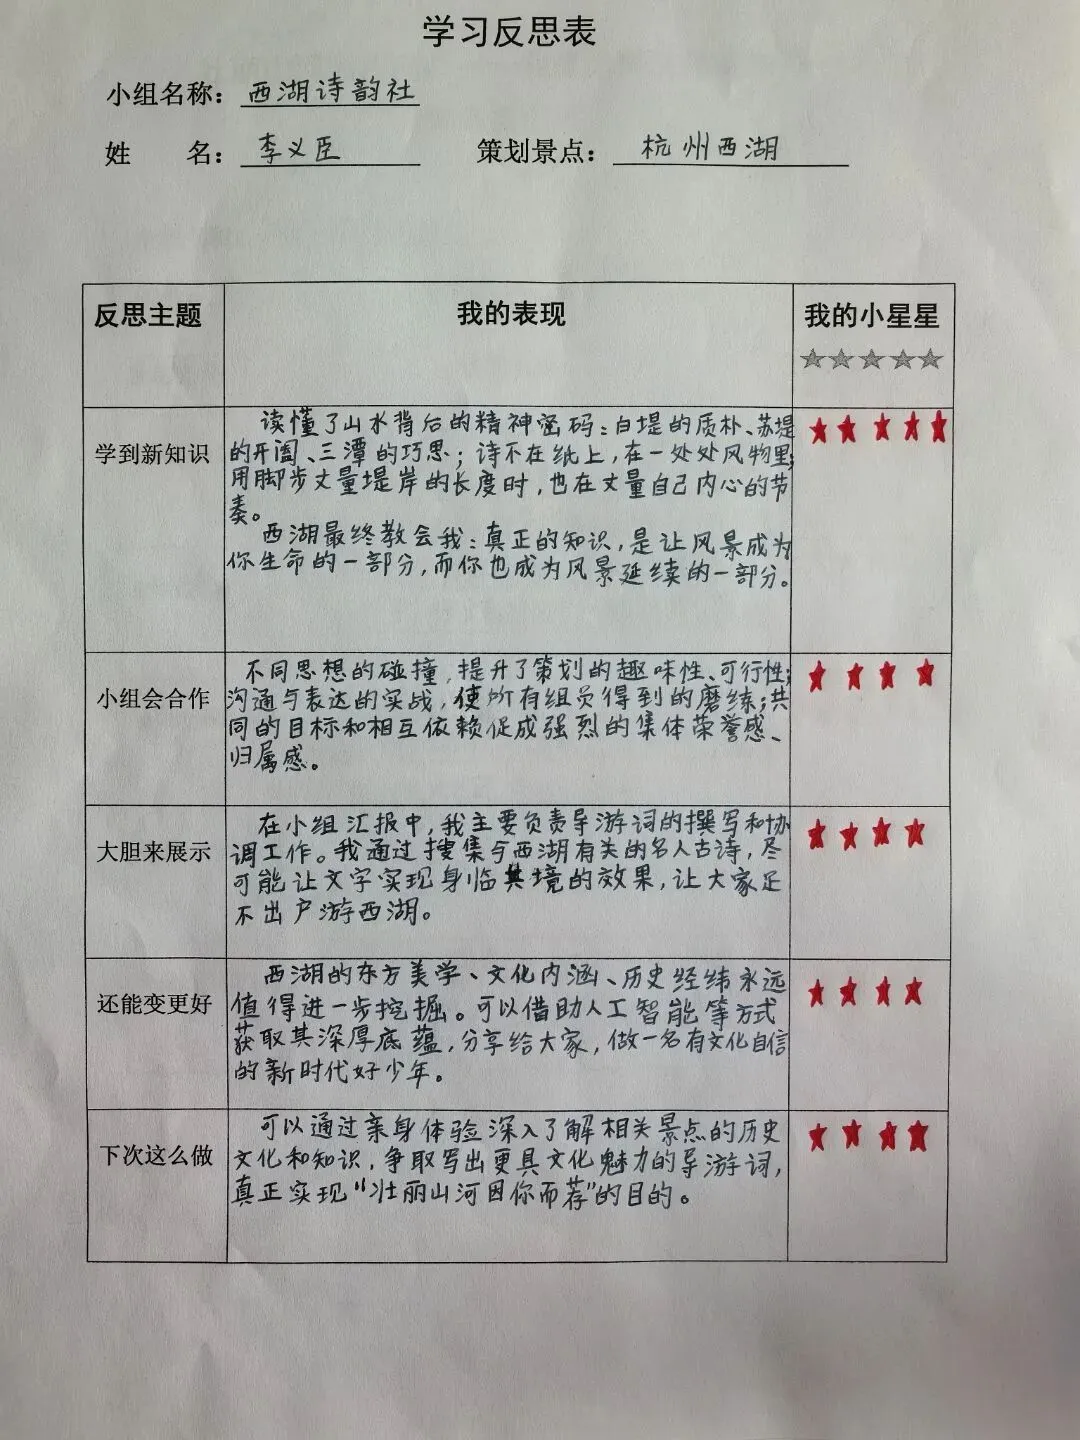 学习反思表
小组名称：西湖诗韵社
姓 名：李义臣 策划景点：杭州西湖
反思主题 我的表现 我的小星星
☆☆☆☆☆
学到新知识
读懂了山水背后的精神密码：白堤的质朴、苏堤
的开阖、三潭的巧思；诗不在纸上，在一处处风物里；
用脚步丈量堤岸的长度时，也在丈量自己内心的节
奏。
西湖最终教会我：真正的知识，是让风景成为
你生命的一部分，而你也成为风景延续的一部分。
★★★★★
小组会合作
不同思想的碰撞，提升了策划的趣味性、可行性；
沟通与表达的实战，使所有组员得到的磨练；共
同的目标和相互依赖促成强烈的集体荣誉感、
归属感。
★★★★
大胆来展示
在小组汇报中，我主要负责导游词的撰写和协
调工作。我通过搜集与西湖有关的名人古诗，尽
可能让文字实现身临其境的效果，让大家足
不出户游西湖。
★★★★
还能变更好
西湖的东方美学、文化内涵、历史经纬永远
值得进一步挖掘。可以借助人工智能等方式
获取其深厚底蕴，分享给大家，做一名有文化自信
的新时代好少年。
★★★★
下次这么做
可以通过亲身体验深入了解相关景点的历史
文化和知识，争取写出更具文化魅力的导游词，
真正实现“壮丽山河因你而荐”的目的。
★★★★